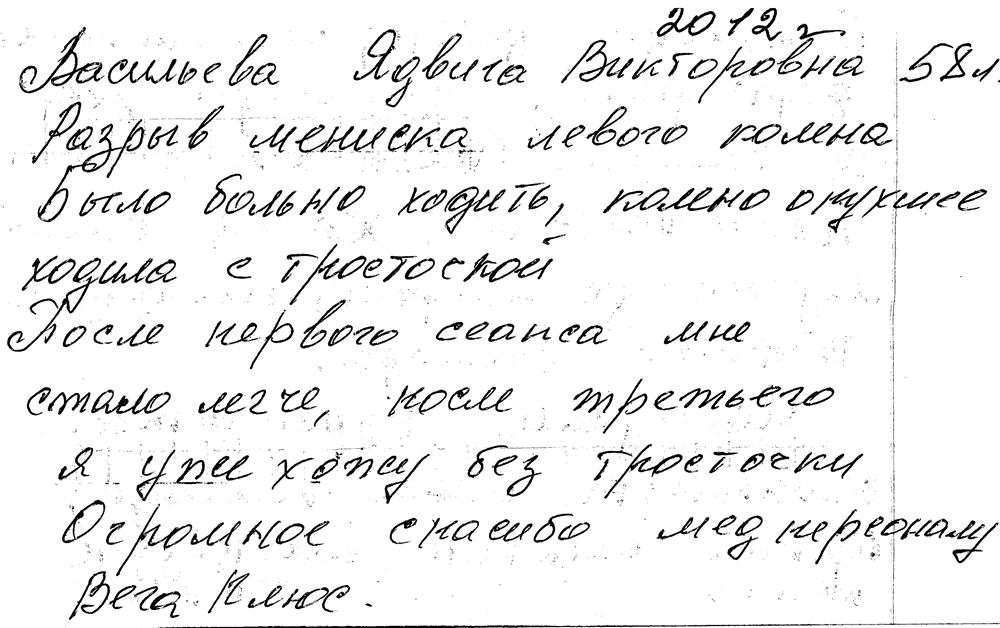 2012 г
Васильева Ядвига Викторовна 58 л.
Разрыв мениска левого колена
Было больно ходить, колено опухшее
ходила с тростоской
После первого сеанса мне
стало легче, после третьего
я уже хожу без тросточки
Огромное спасибо медперсоналу
Вега Плюс.